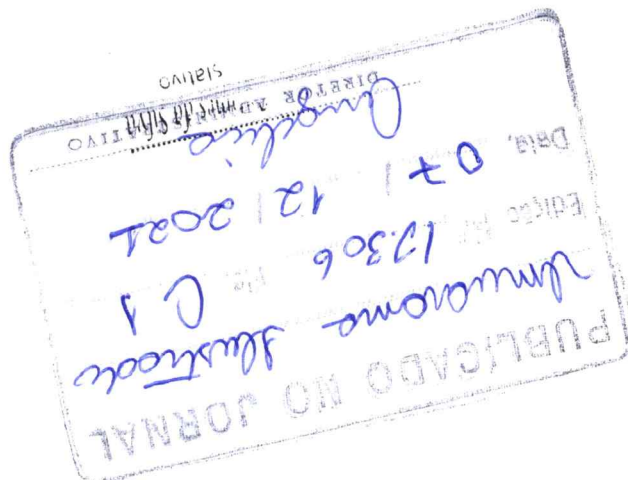 PUBLICADO NO JORNAL
Umuarama Ilustrado
Edição Nº 12.306 Pág. C 1
Data, 07 / 12 / 2021
Angélica
DIRETOR ADMINISTRATIVO
slativo